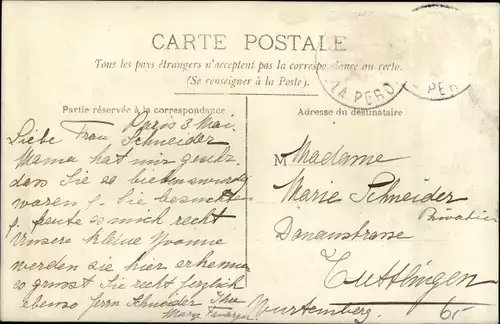 CARTE POSTALE
Tous les pays étrangers n'acceptent pas la correspondance au recto.
(Se renseigner à la Poste).
LA PERO
PER
Partie réservée à la correspondance
Adresse du destinataire
Paris 3 Mai.
Liebe Frau Schneider
Mama hat mir
dass Sie so
waren Sie
freute es mich recht
Unsere kleine Yvonne
werden sie hier erkennen
es grüsst Sie recht herzlich
ebenso Herrn Schneider Ihre
Mary
M Madame
Marie Schneider
Privatier
Donaustrasse
Tuttlingen
Wurtemberg.